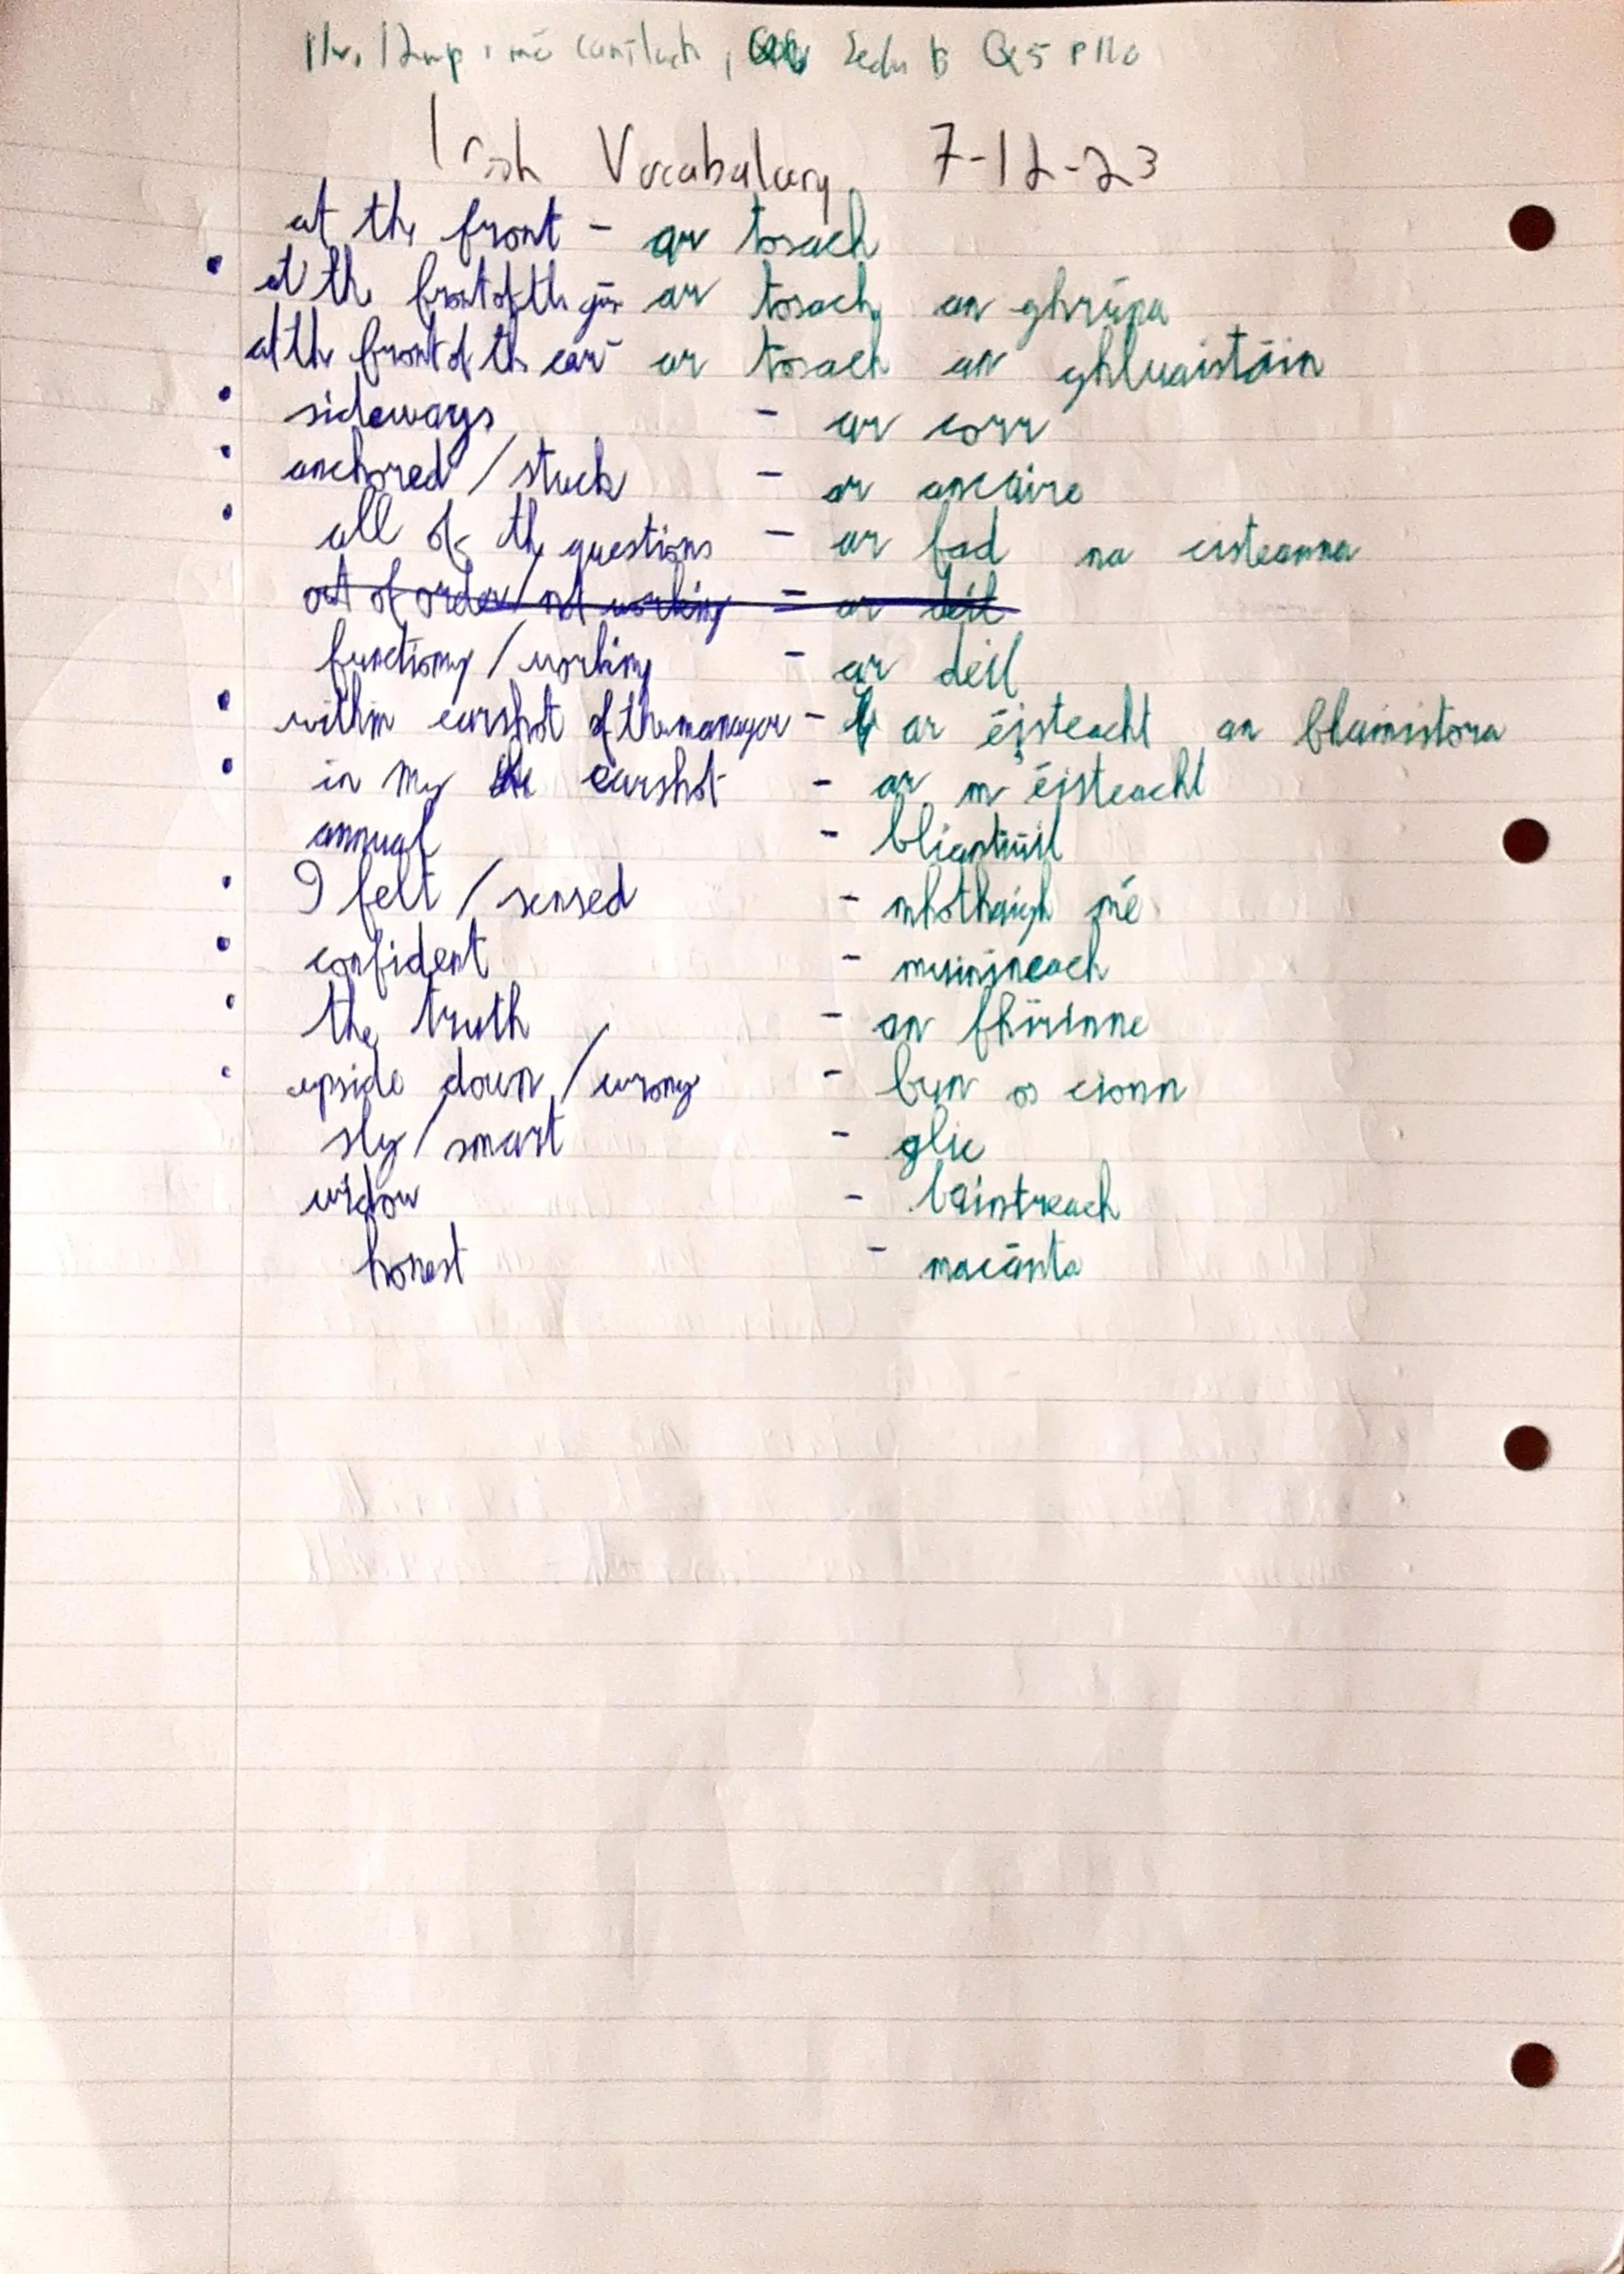 mé
Irish Vocabulary 7-12-23
at the front - ar tosach
at the front of the ar tosach an ghrúpa
at the front of the car - ar tosach an ghluaisteáin
sideways - ar corr
anchored / stuck - ar ancaire
all of the questions - ar fad na cisteanna
out of order / not working - ar deil
functiony / working - ar deil
within earshot of the manager - ar éisteacht an bhainistora
in my earshot - ar m'éisteacht
annual - bliantúil
I felt / sensed - mhothaigh mé
confident - muiníneach
the truth - an fhírinne
upside down / wrong - bun os cionn
sly / smart - glic
widow - baintreach
honest - macánta